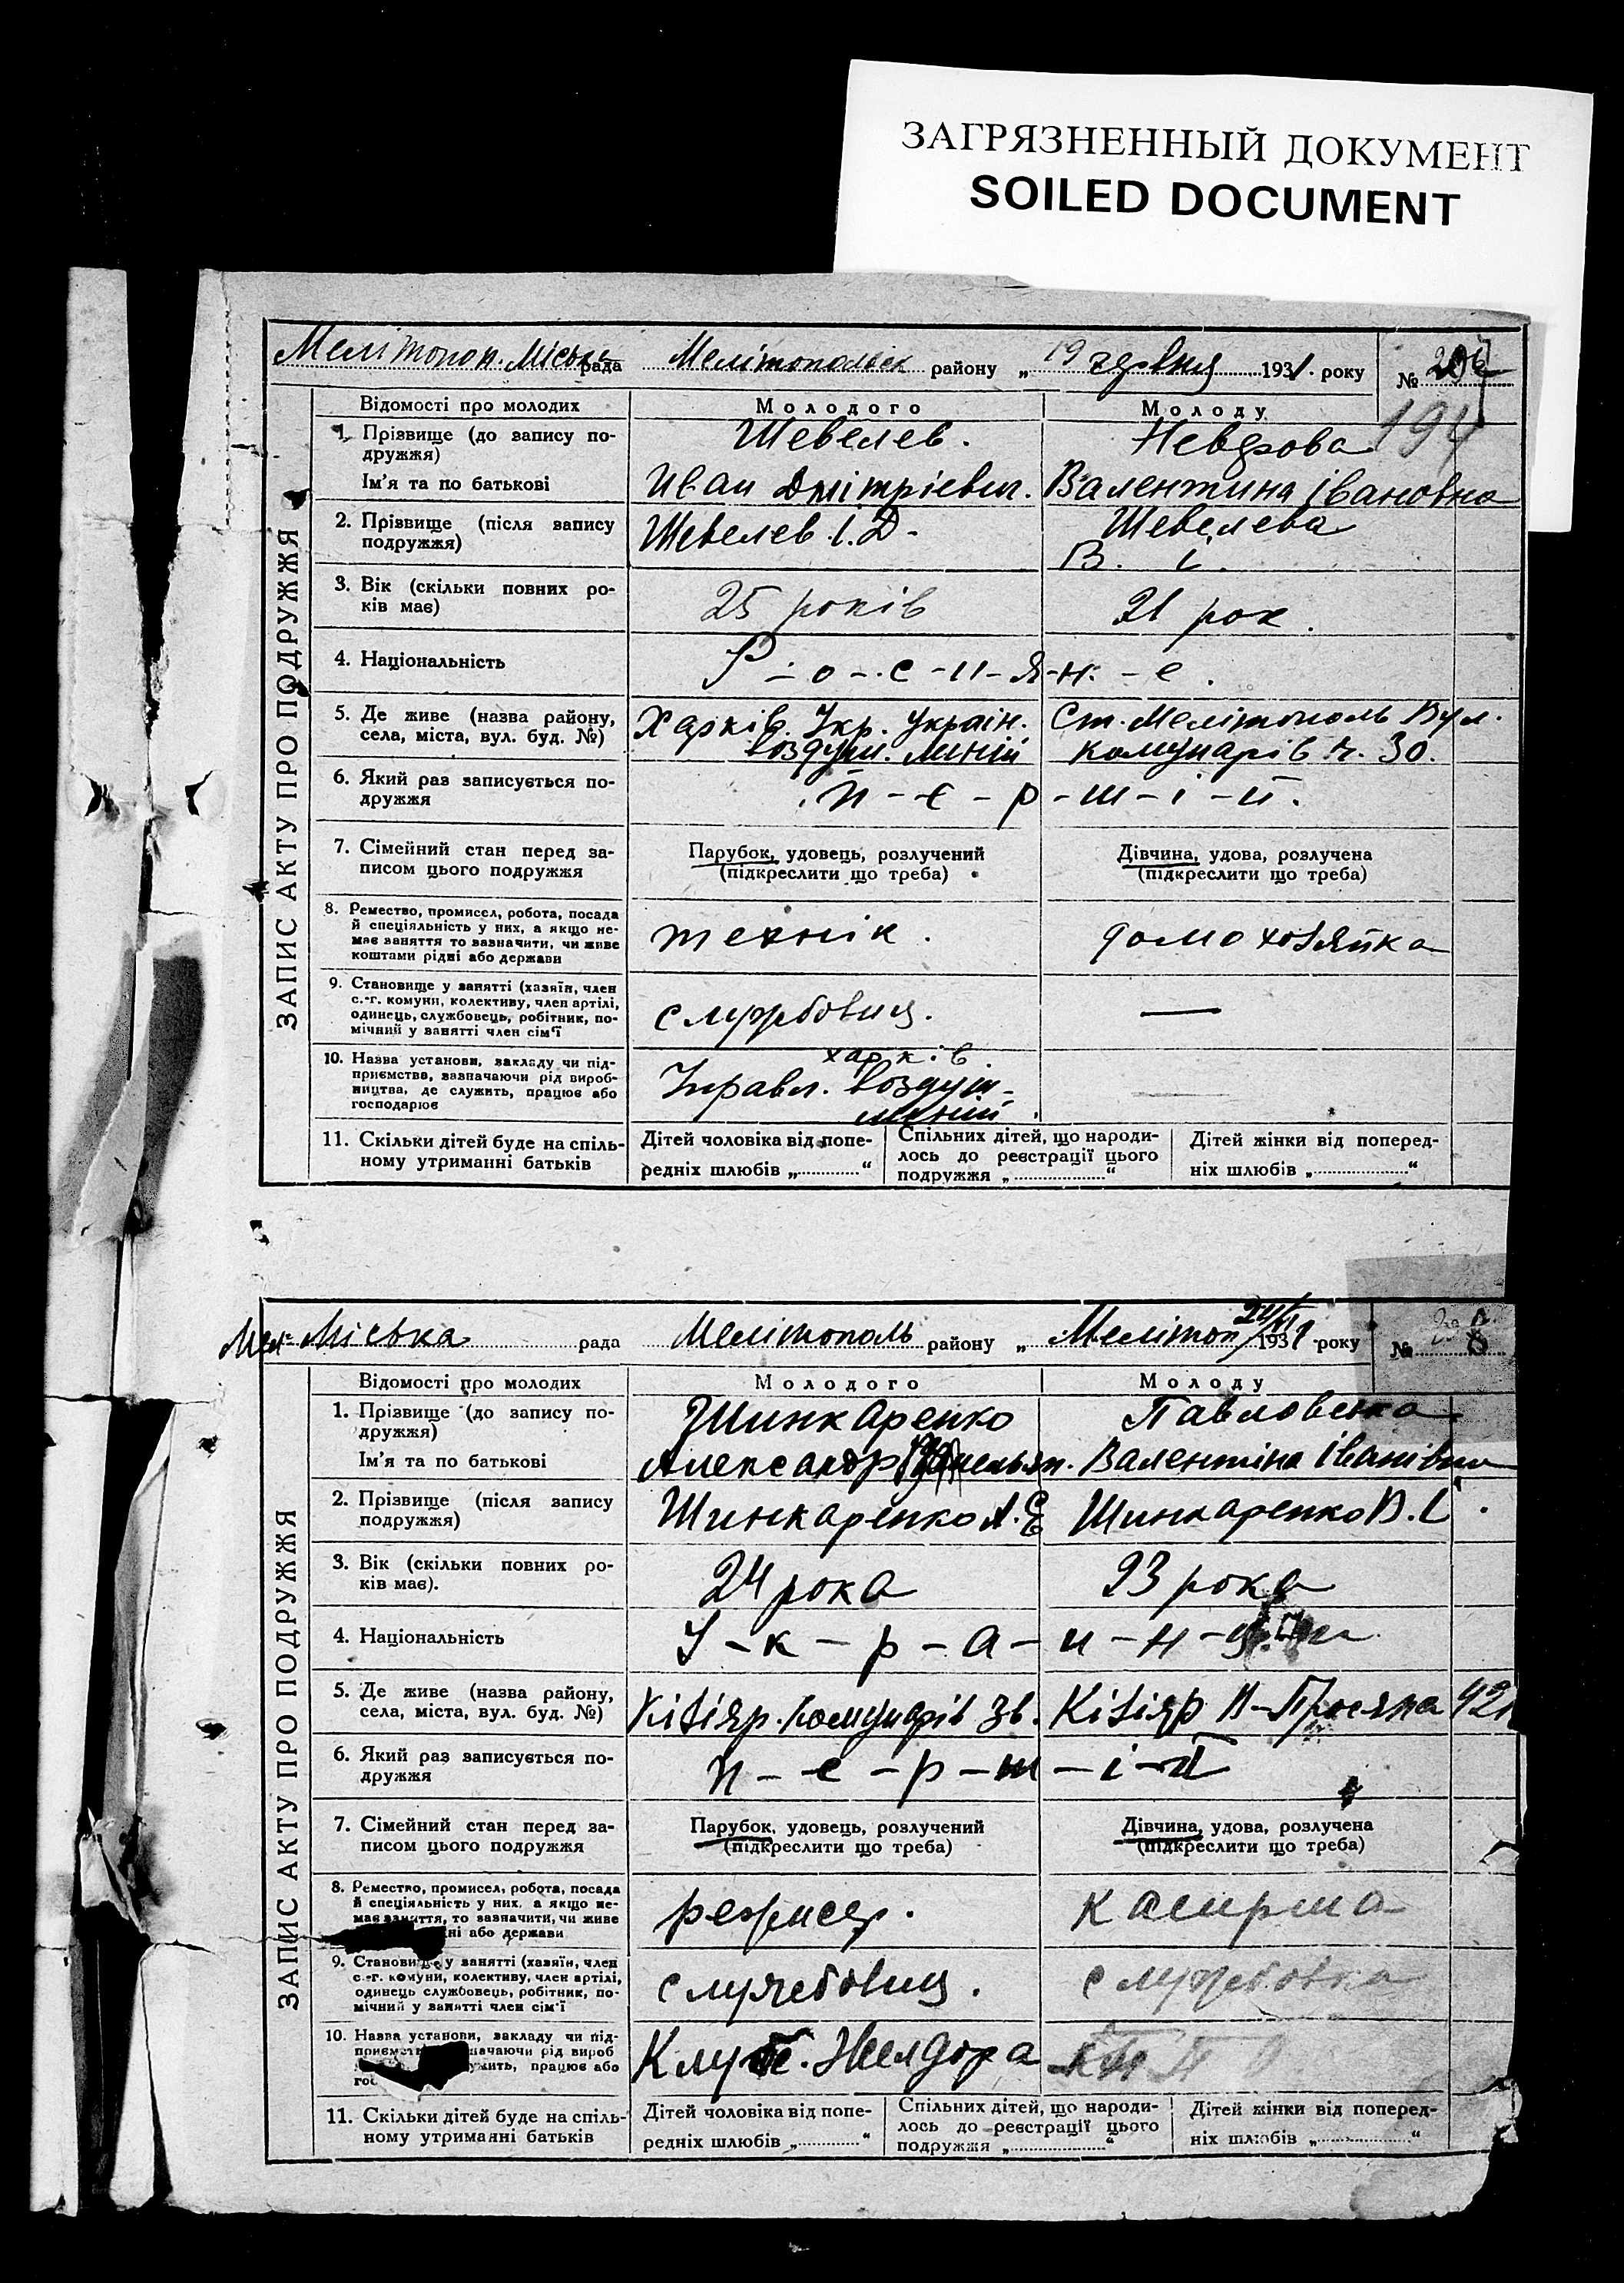 ЗАГРЯЗНЕННЫЙ ДОКУМЕНТ
SOILED DOCUMENT
Мелітопол. Міська рада Мелітопольск району „ 19 червня 1931. року №
194
ЗАПИС АКТУ ПРО ПОДРУЖЖЯ
Відомості про молодих Молодого Молоду
1. Прізвище (до запису по- Шевелев.
дружжя)
Ім'я та по батькові Иван Дмітріевич. Валентина Івановна
2. Прізвище (після запису Шевелев. І. Д- Шевелева
подружжя) В. І.
3. Вік (скільки повних ро- 25 років 21 рок.
ків має)
4. Національність Р-о-с-и-я-н-е.
5. Де живе (назва району, Харків. Укр. Украін. Ст. Мелітополь Вул.
села, міста, вул. буд. №) воздуш. линій комунарів ч. 30.
6. Який раз записується по- п-е-р-ш-і-й.
дружжя
7. Сімейний стан перед за- Парубок, удовець, розлучений Дівчина, удова, розлучена
писом цього подружжя (підкреслити що треба) (підкреслити що треба)
8. Ремество, промисел, робота, посада
й спеціяльність у них, а якщо не- технік. домохозяйка
має заняття то зазначити, чи живе
коштами рідні або держави
9. Становище у занятті (хазяїн, член
с.-г. комуни, колективу, член артілі, службовиц. —
одинець, службовець, робітник, по-
мічний у занятті член сім'ї
10. Назва установи, закладу чи під- харків
приємства, зазначаючи рід вироб- Управл. воздуш-
ництва, де служить, працює або линій
господарює
11. Скільки дітей буде на спіль- Дітей чоловіка від попе- Спільних дітей, що народи- Дітей жінки від поперед-
ному утриманні батьків редніх шлюбів „ “ лось до реєстрації цього ніх шлюбів „ “
подружжя „ “
Мел- Міська рада Мелітополь району „ Мелітоп 1931 року №
ЗАПИС АКТУ ПРО ПОДРУЖЖЯ
Відомості про молодих Молодого Молоду
1. Прізвище (до запису по- Шинкаренко Павловська
дружжя)
Ім'я та по батькові Александр Валентіна Іванівна
2. Прізвище (після запису Шинкаренко А. Е Шинкаренко В. І.
подружжя)
3. Вік (скільки повних ро- 24 рока 23 рока
ків має).
4. Національність У-к-р-а-и-н-ц
5. Де живе (назва району, Кізіяр. Комунарів Кізіяр
села, міста, вул. буд. №)
6. Який раз записується по- п-е-р-ш-і-й
дружжя
7. Сімейний стан перед за- Парубок, удовець, розлучений Дівчина, удова, розлучена
писом цього подружжя (підкреслити що треба) (підкреслити що треба)
8. Ремество, промисел, робота, посада
й спеціяльність у них, а якщо не- режисер. касирша
має заняття, то зазначити, чи живе
або держави
9. Становище у занятті (хазяїн, член
с.-г. комуни, колективу, член артілі, службовиц. службовка
одинець службовець, робітник, по-
мічний у занятті член сім'ї
10. Назва установи, закладу чи під- Клуб. Желдора
рід вироб
працює або
11. Скільки дітей буде на спіль- Дітей чоловіка від попе- Спільних дітей, що народи- Дітей жінки від поперед-
ному утриманні батьків редніх шлюбів „ “ лось до реєстрації цього ніх шлюбів „ “
подружжя „ “